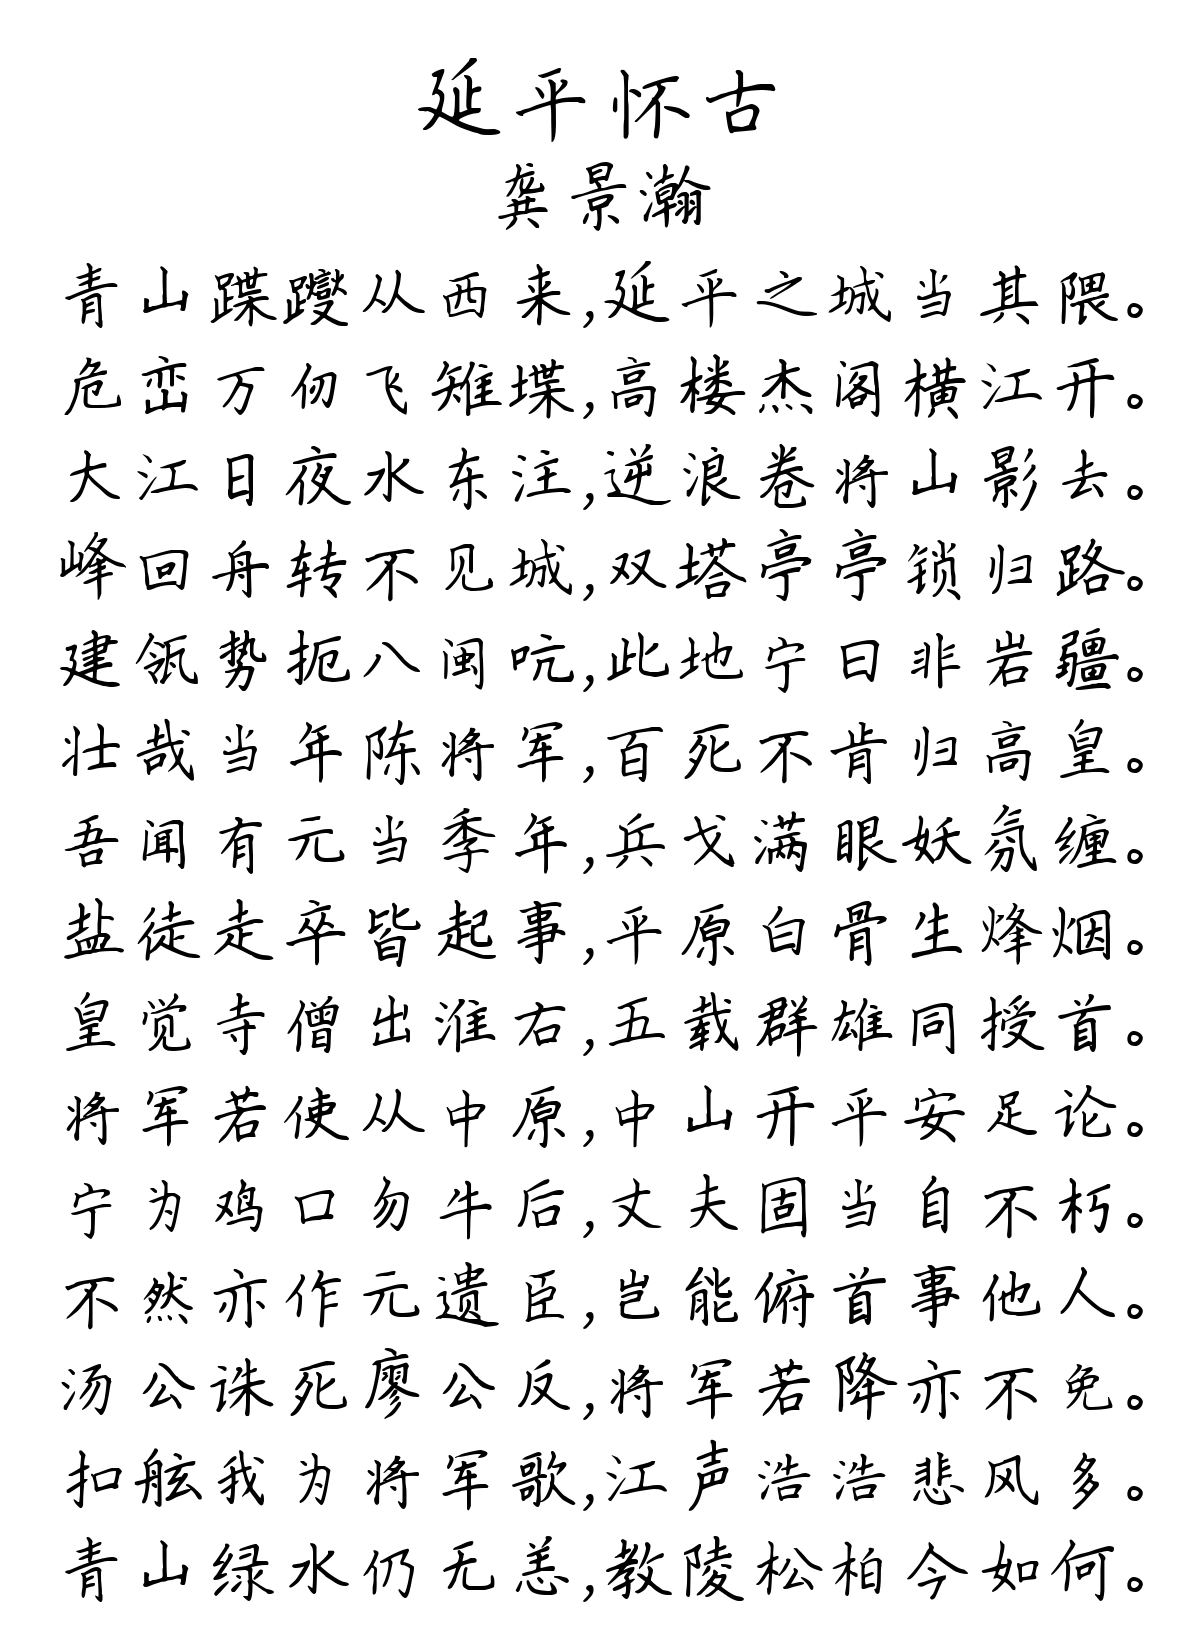 延平怀古
龚景瀚
青山蹀躞从西来,延平之城当其隈。
危峦万仞飞雉堞,高楼杰阁横江开。
大江日夜水东注,逆浪卷将山影去。
峰回舟转不见城,双塔亭亭锁归路。
建瓴势扼八闽吭,此地宁曰非岩疆。
壮哉当年陈将军,百死不肯归高皇。
吾闻有元当季年,兵戈满眼妖氛缠。
盐徒走卒皆起事,平原白骨生烽烟。
皇觉寺僧出淮右,五载群雄同授首。
将军若使从中原,中山开平安足论。
宁为鸡口勿牛后,丈夫固当自不朽。
不然亦作元遗臣,岂能俯首事他人。
汤公诛死廖公反,将军若降亦不免。
扣舷我为将军歌,江声浩浩悲风多。
青山绿水仍无恙,教陵松柏今如何。